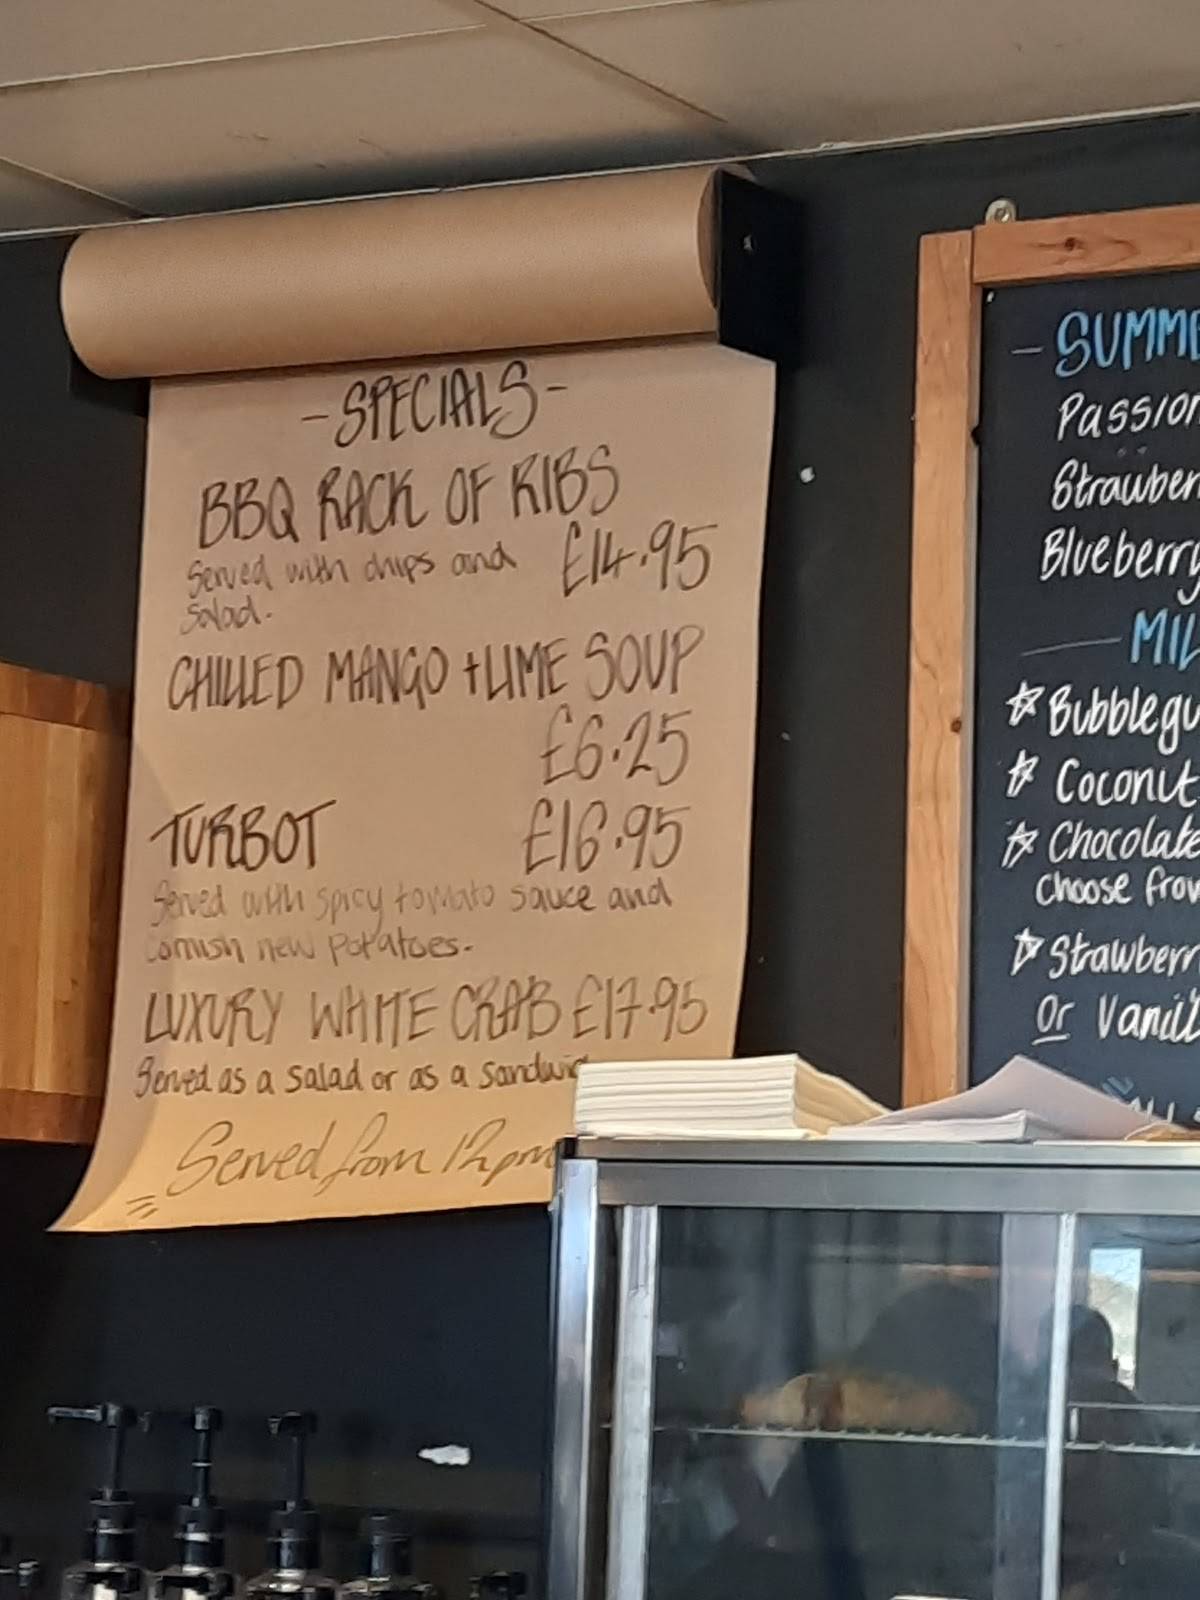 - SPECIALS -
BBQ RACK OF RIBS
Served with chips and £14.95
Salad.
CHILLED MANGO + LIME SOUP
£6.25
TURBOT £16.95
Served with spicy tomato sauce and
Cornish new potatoes.
LUXURY WHITE CRAB £17.95
Served as a salad or as a sandwic
Served from 12pm
- SUMME
Passion
Strawber
Blueberry
MIL
Bubblegu
Coconut
Chocolate
Choose from
Stawberr
Or Vanill